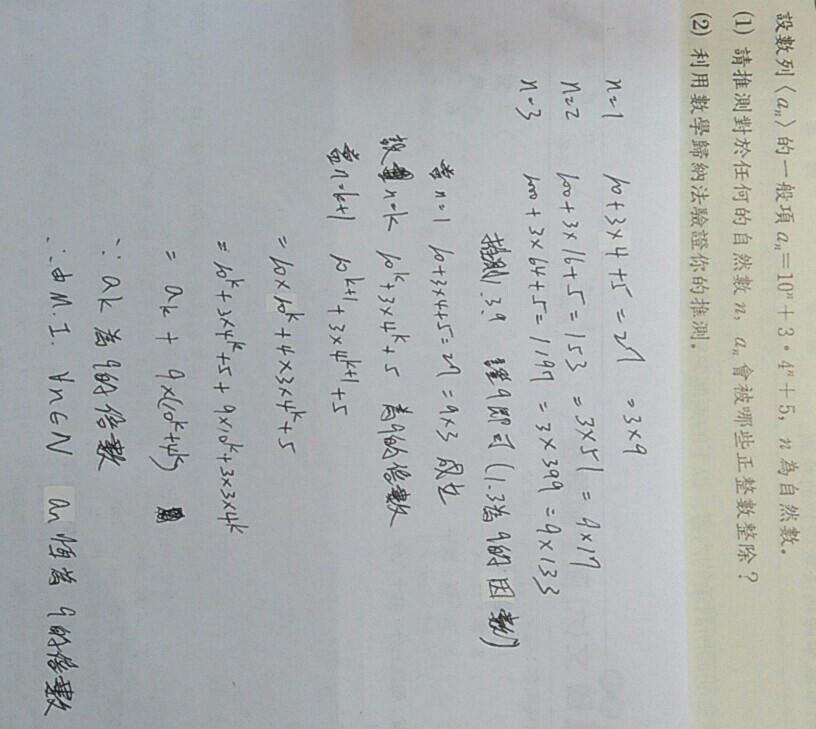 設數列〈aₙ〉的一般項 aₙ=10ⁿ+3・4ⁿ+5，n 為自然數。
(1) 請推測對於任何的自然數 n，aₙ 會被哪些正整數整除？
(2) 利用數學歸納法驗證你的推測。
n=1 10+3×4+5=27 =3×9
n=2 100+3×16+5=153 =3×51 =9×17
n=3 1000+3×64+5=1197 =3×399 =9×133
推測1.3.9 證9即可(1.3為9的因數)
當n=1 10+3×4+5=27=9×3 成立
設n=k 10ᵏ+3×4ᵏ+5 為9的倍數
當n=k+1 10ᵏ⁺¹+3×4ᵏ⁺¹+5
=10×10ᵏ+4×3×4ᵏ+5
=10ᵏ+3×4ᵏ+5+9×10ᵏ+3×3×4ᵏ
=aₖ+9×(10ᵏ+4ᵏ)
∵aₖ為9的倍數
∴由M.I. ∀n∈N aₙ恆為9的倍數